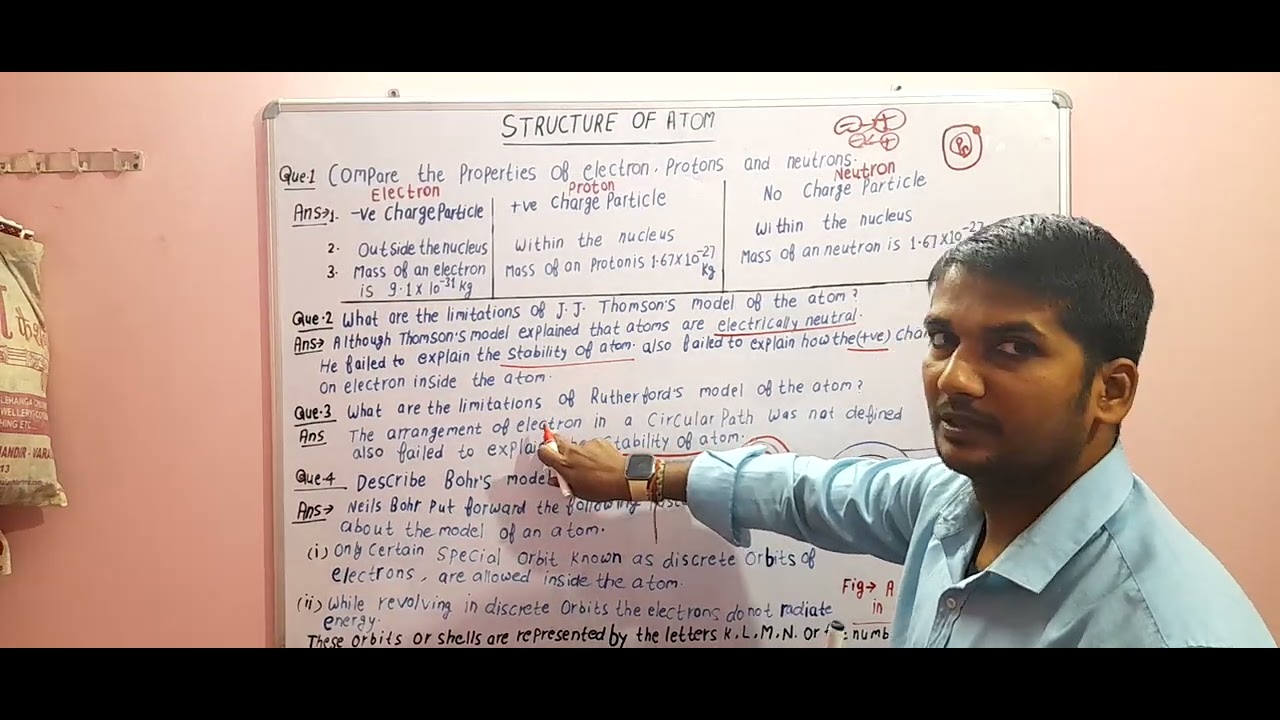 STRUCTURE OF ATOM
Que.1 Compare the Properties of electron, Protons and neutrons.
Electron Proton Neutron
Ans→1. -ve Charge Particle +ve Charge Particle No Charge Particle
2. Outside the nucleus Within the nucleus Within the nucleus
3. Mass of an electron is 9.1 x 10-31 kg Mass of an Proton is 1.67x10-27 kg Mass of an neutron is 1.67x10-27
Que.2 What are the limitations of J.J. Thomson's model of the atom?
Ans→ Although Thomson's model explained that atoms are electrically neutral.
He failed to explain the stability of atom. also failed to explain how the (+ve)
on electron inside the atom.
Que.3 What are the limitations of Rutherford's model of the atom?
Ans The arrangement of electron in a Circular Path was not defined
also failed to explain stability of atom.
Que.4 Describe Bohr's model
Ans→ Neils Bohr Put forward the following
about the model of an atom.
(i) Only Certain Special Orbit Known as discrete Orbits of
electrons, are allowed inside the atom.
Fig→ A
in
(ii) While revolving in discrete Orbits the electrons do not radiate
energy.
These orbits or shells are represented by the letters K.L.M.N. or